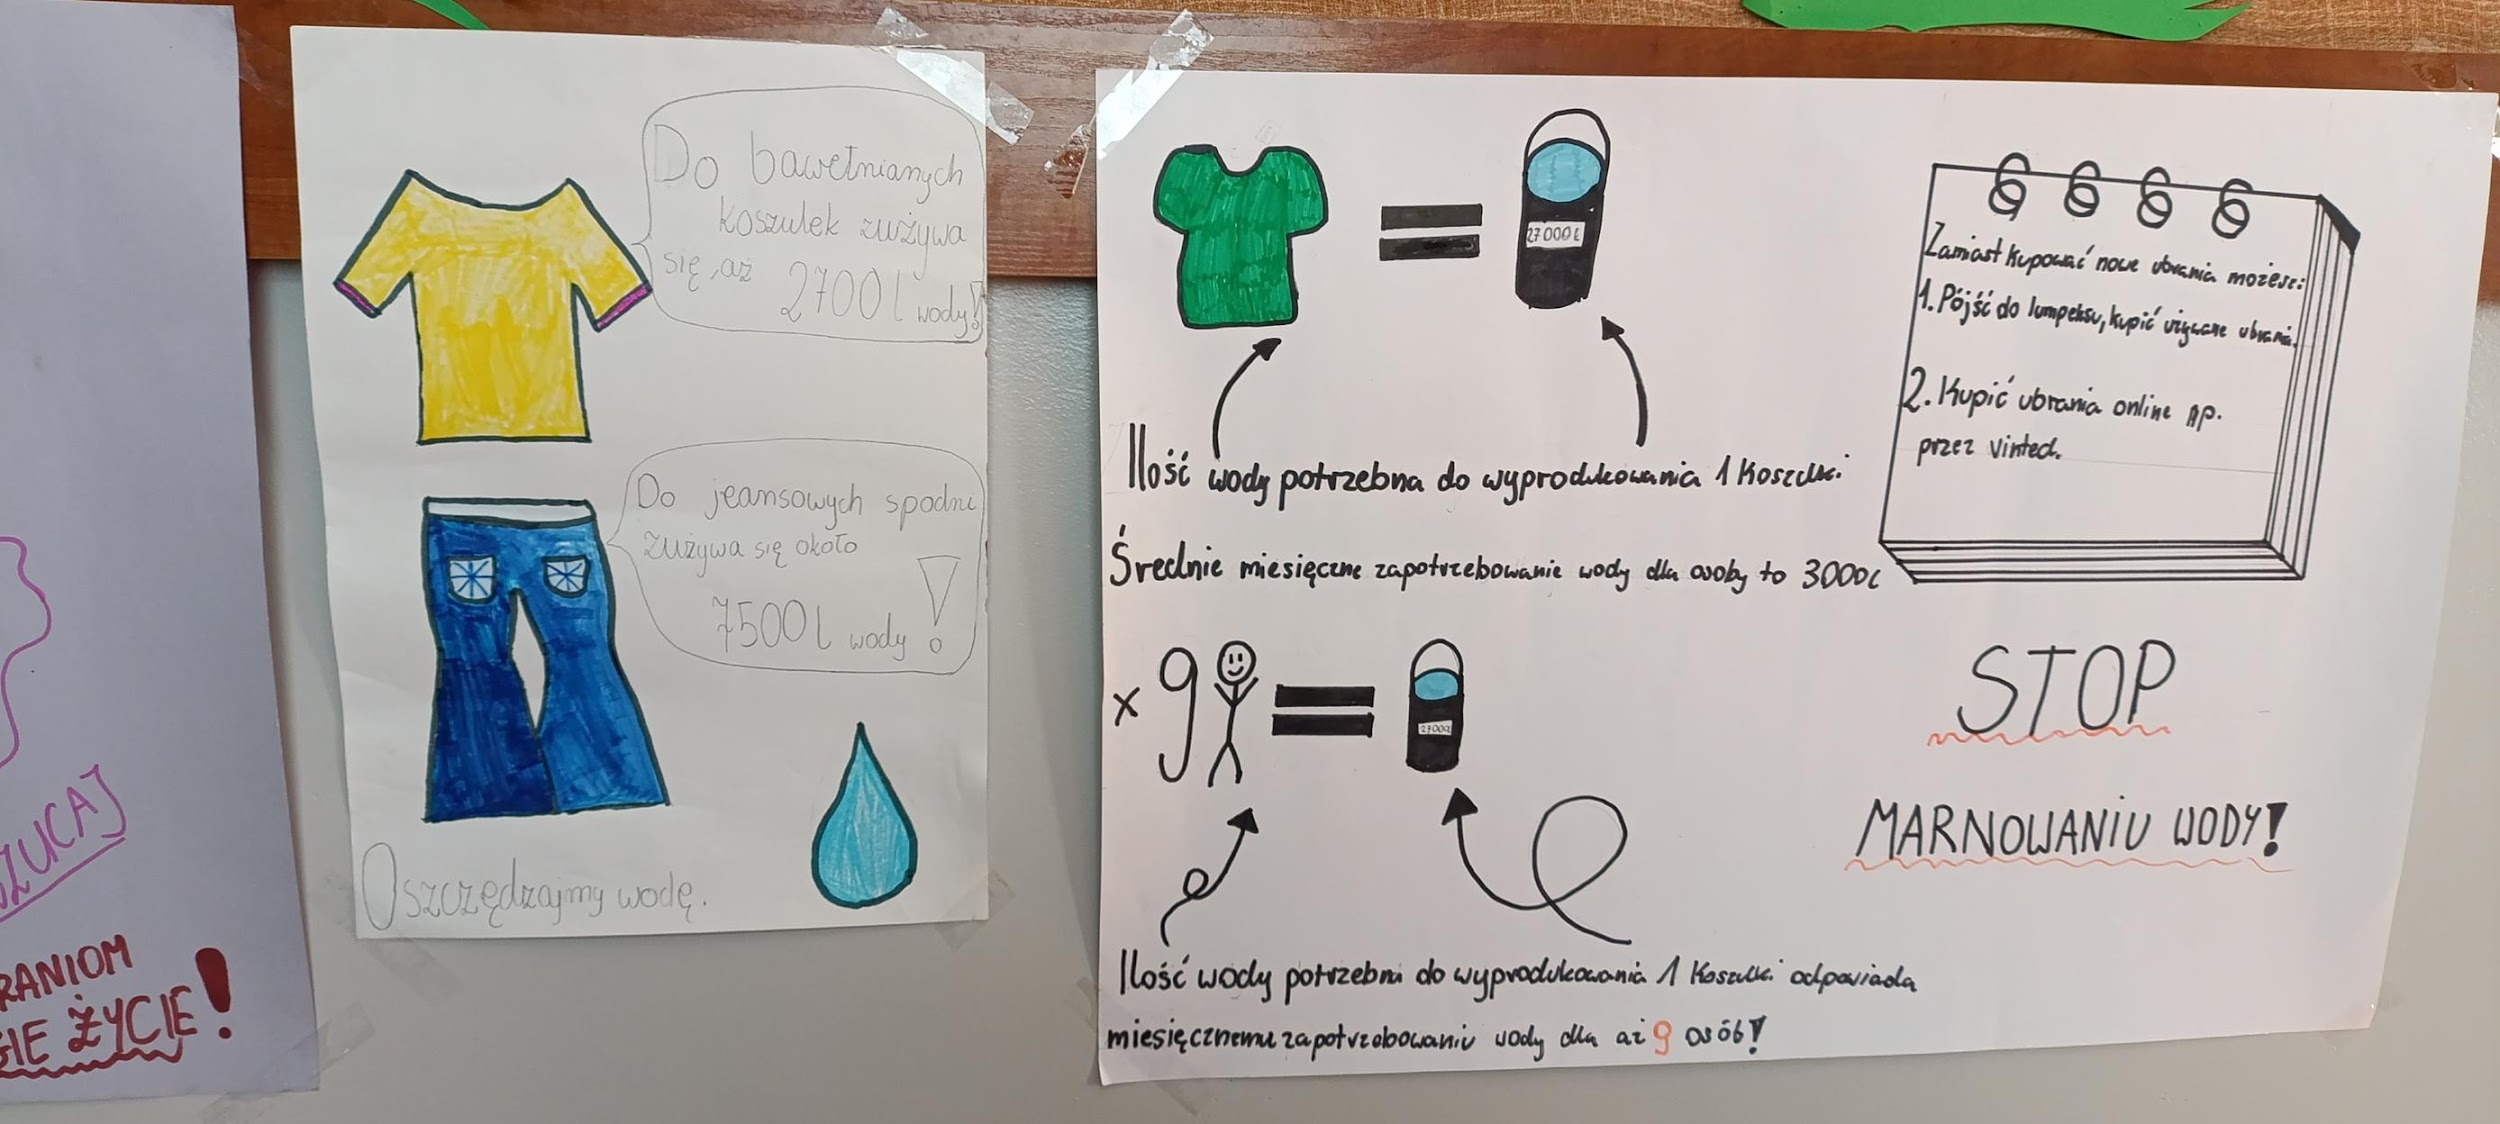 SZUCAJ
RANIOM
GIE ŻYCIE!
Do bawełnianych
koszulek zużywa
się, aż 2700l wody!
Do jeansowych spodni
zużywa się około
7500l wody!
Oszczędzajmy wodę.
27000l
Ilość wody potrzebna do wyprodukowania 1 koszulki
Średnie miesięczne zapotrzebowanie wody dla osoby to 3000l
x 9
2700l
Ilość wody potrzebna do wyprodukowania 1 koszulki odpowiada
miesięcznemu zapotrzebowaniu wody dla aż 9 osób!
Zamiast kupować nowe ubrania możesz:
1. Pójść do lumpeksu, kupić używane ubrania.
2. Kupić ubrania online np.
przez vinted.
STOP
MARNOWANIU WODY!